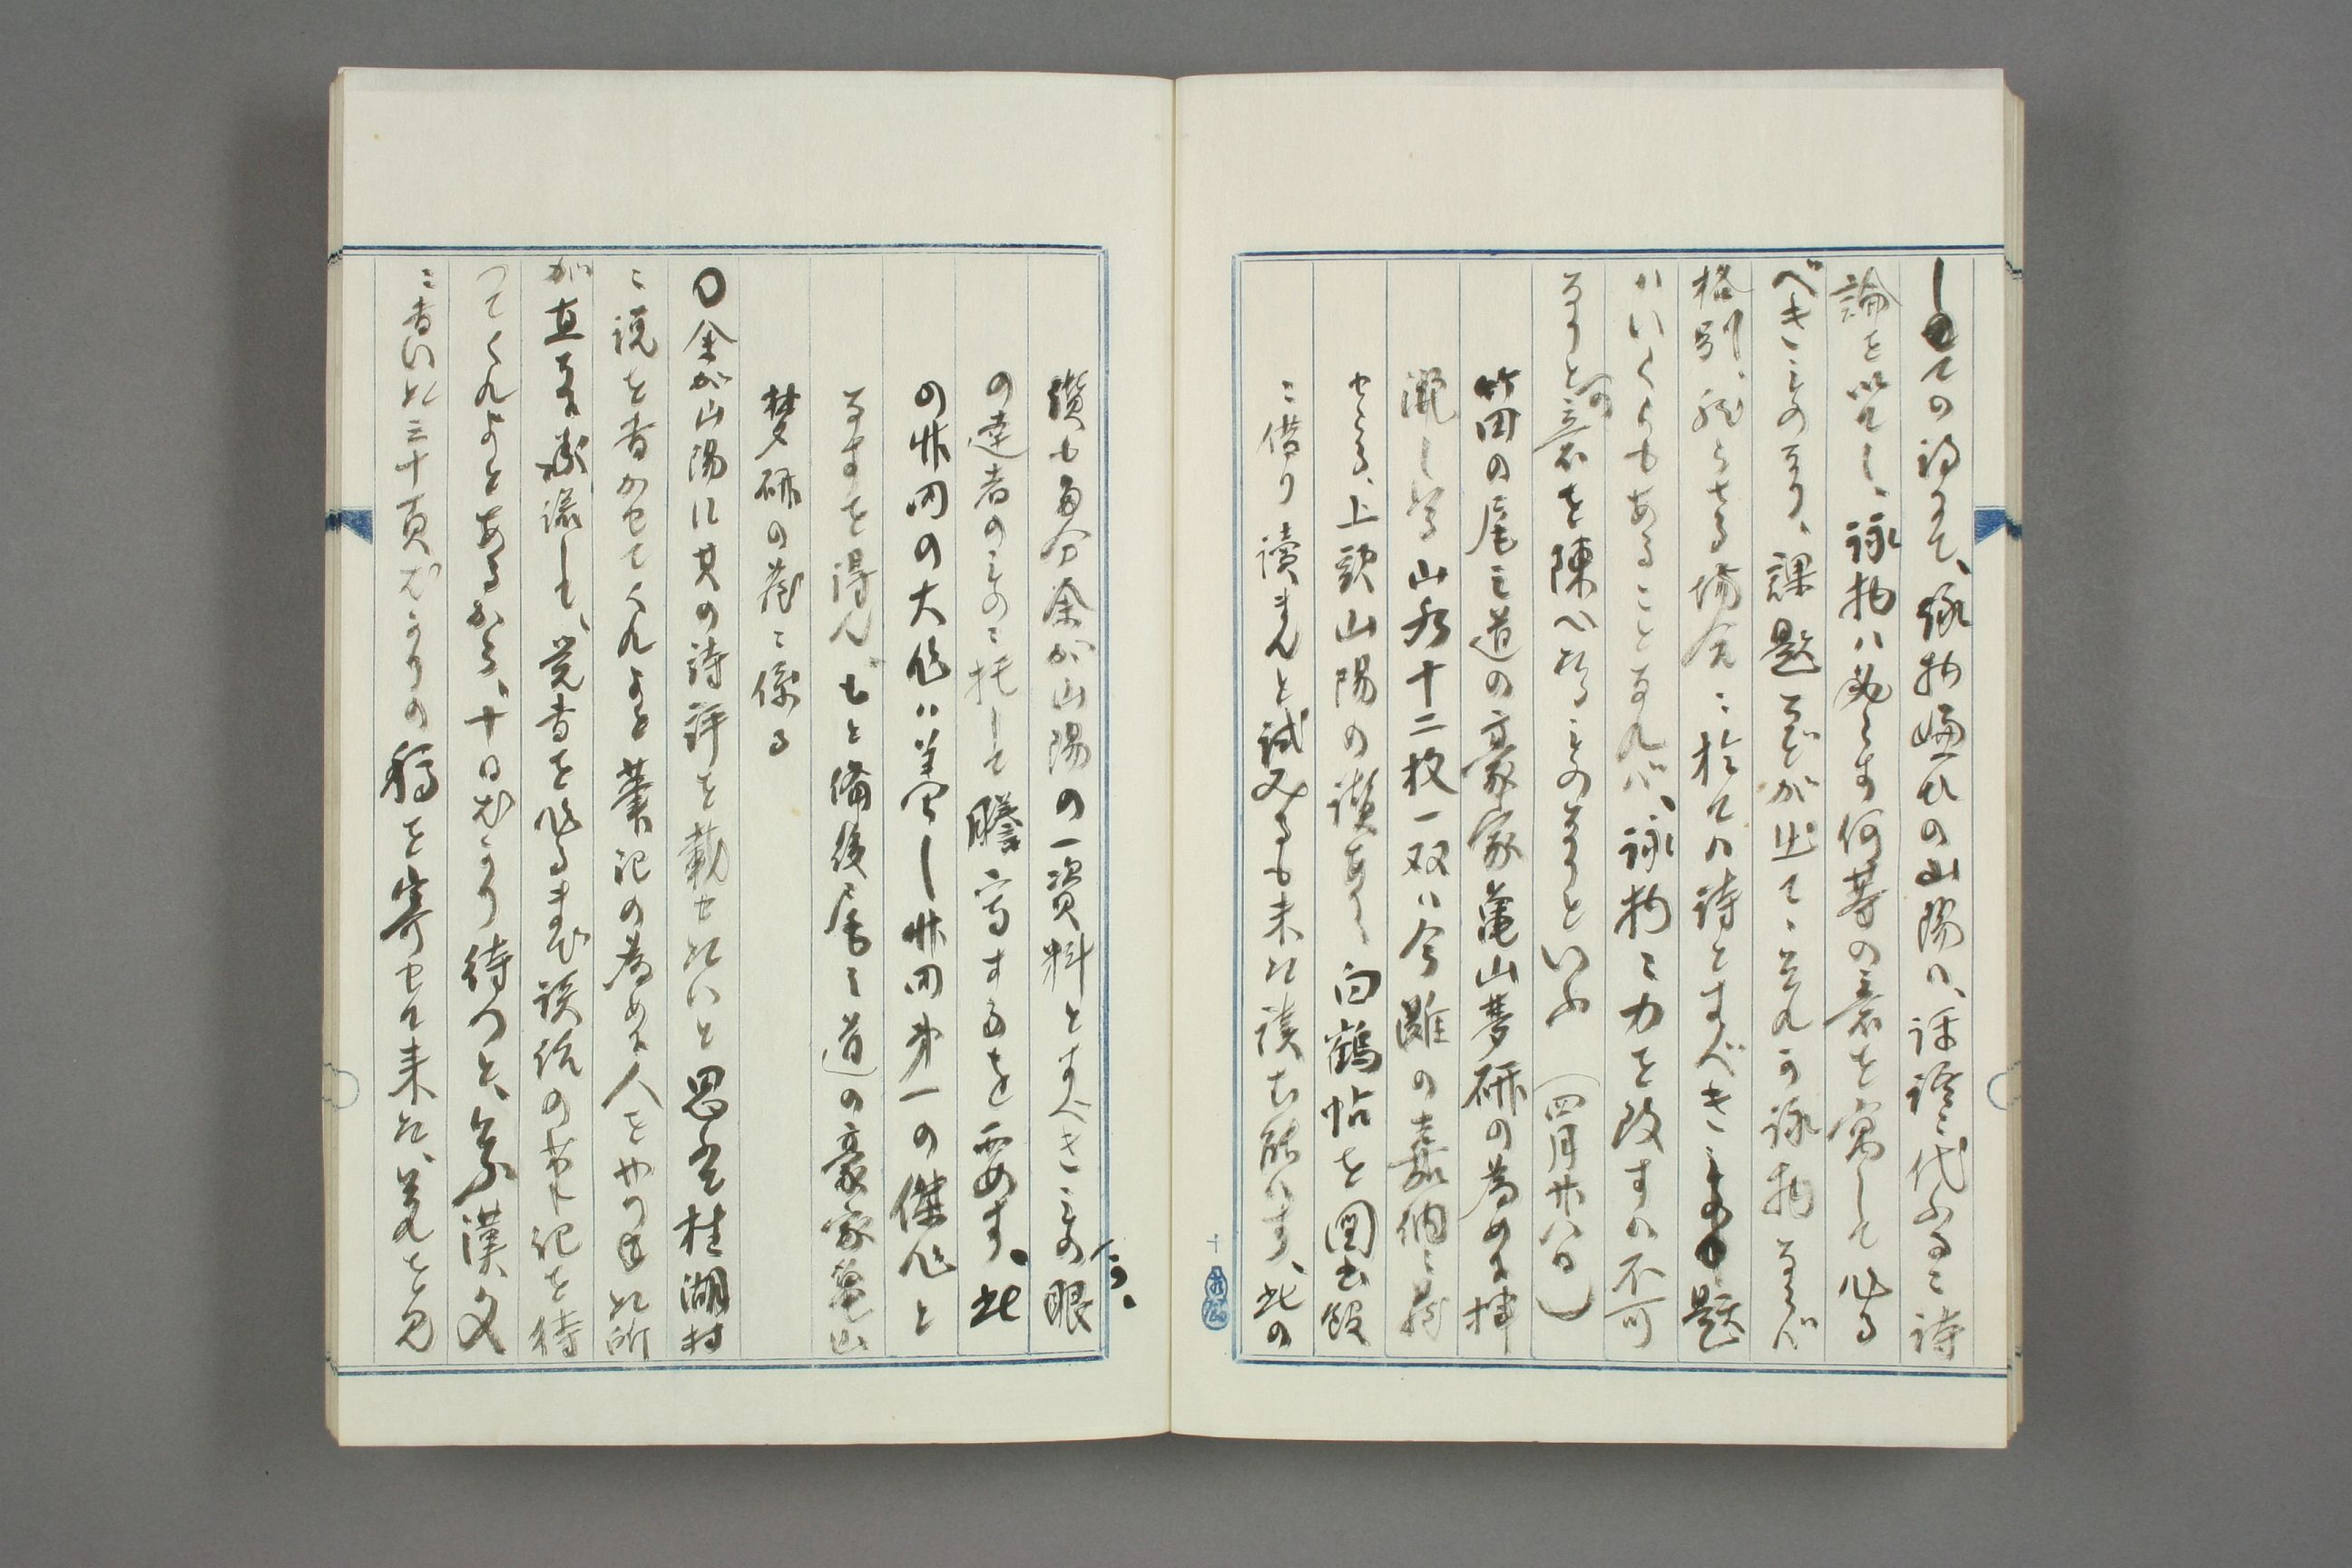 しての詩にて、詠物嫌ひの山陽は、評語に代ふるに詩
論を以てし、詠物は必らず何等の意を寓して作る
べきものなり、課題などが出て、それが詠物ならば
格別、然らざる場合に於ては詩とすべきもの題
はいくらもあることなれば、詠物に力を改すは不可
なりと意を陳べたるものなりといふ (四月廿八日)
竹田の尾之道の豪家亀山夢研の為めに揮
灑し、山水十二枚一双は今灘の嘉納に蔵
せらる、上頭山陽の讃あり 白鶴帖を図書館
に借り読まんと試みるも未た読む能はす、此の
讃も多分余が山陽の一資料とすべきもの眼
の達者のものに托して謄写するを要す、此
の竹田の大作は 竹田第一の傑作と
なすを得んか もと備後尾之道の豪家亀山
夢研の蔵に係る
〇余が山陽に其の詩評を載せたいと思ひ桂湖村
に説を書かせてくれよと筆記の為めに人をやりたる所
が直に承諾して、覚書を作るまで談話の筆記を待
つてくれよとあるから、十日ばかり待つと、漢文
に書いた三十頁ばかりの稿を寄せて来た、是を見